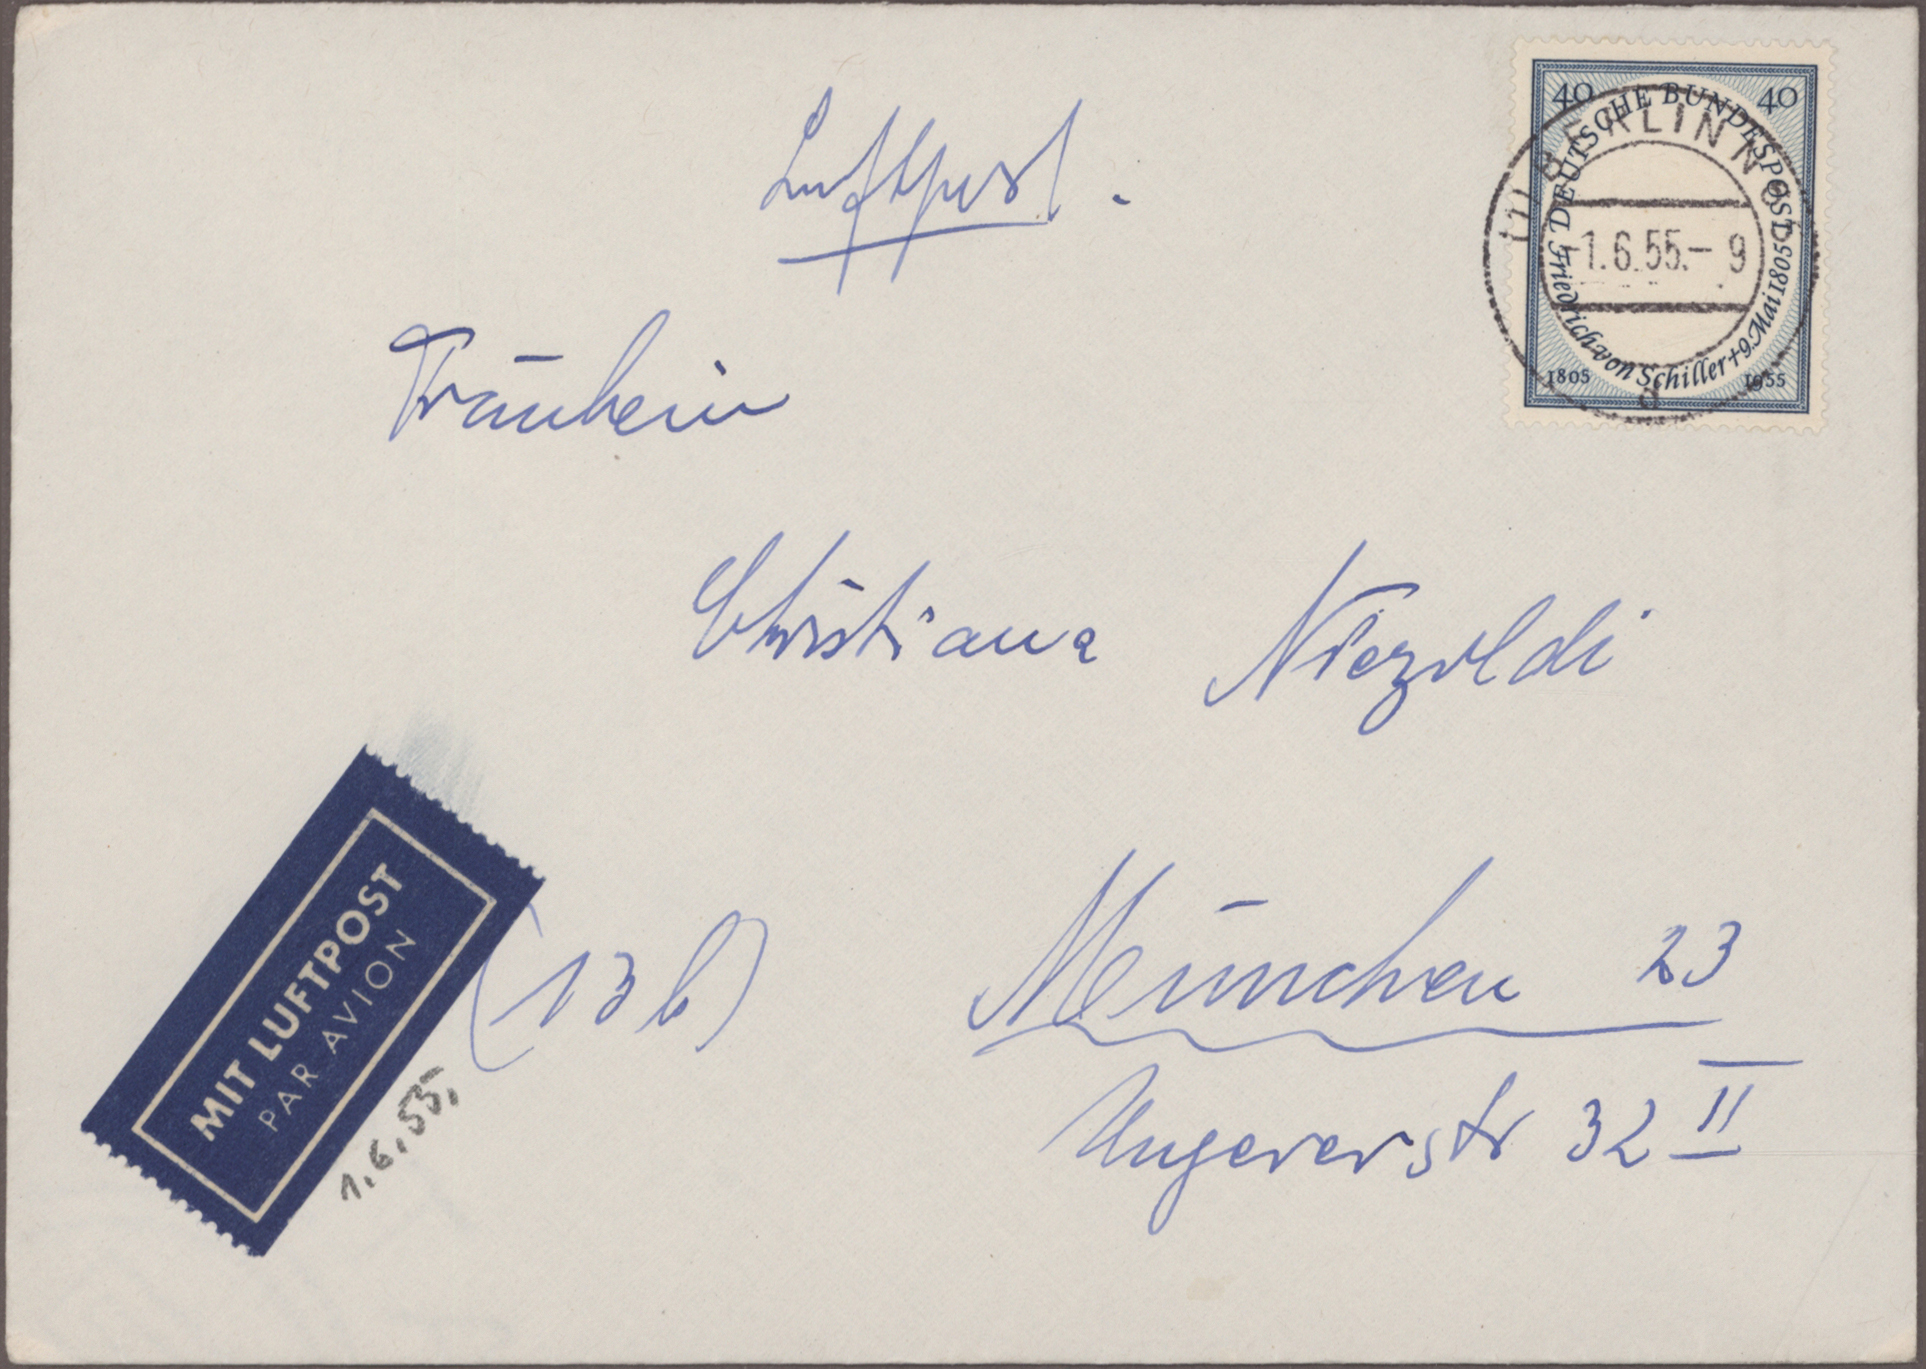 Luftpost.
40 40
DEUTSCHE BUNDESPOST
Friedrich von Schiller + 9. Mai 1805
1805 1955
BERLIN N
-1.6.55.- 9
d
Fräulein
Christiane Niezoldi
MIT LUFTPOST
PAR AVION
(13b) München 23
Ungererstr 32 II
1.6.55.